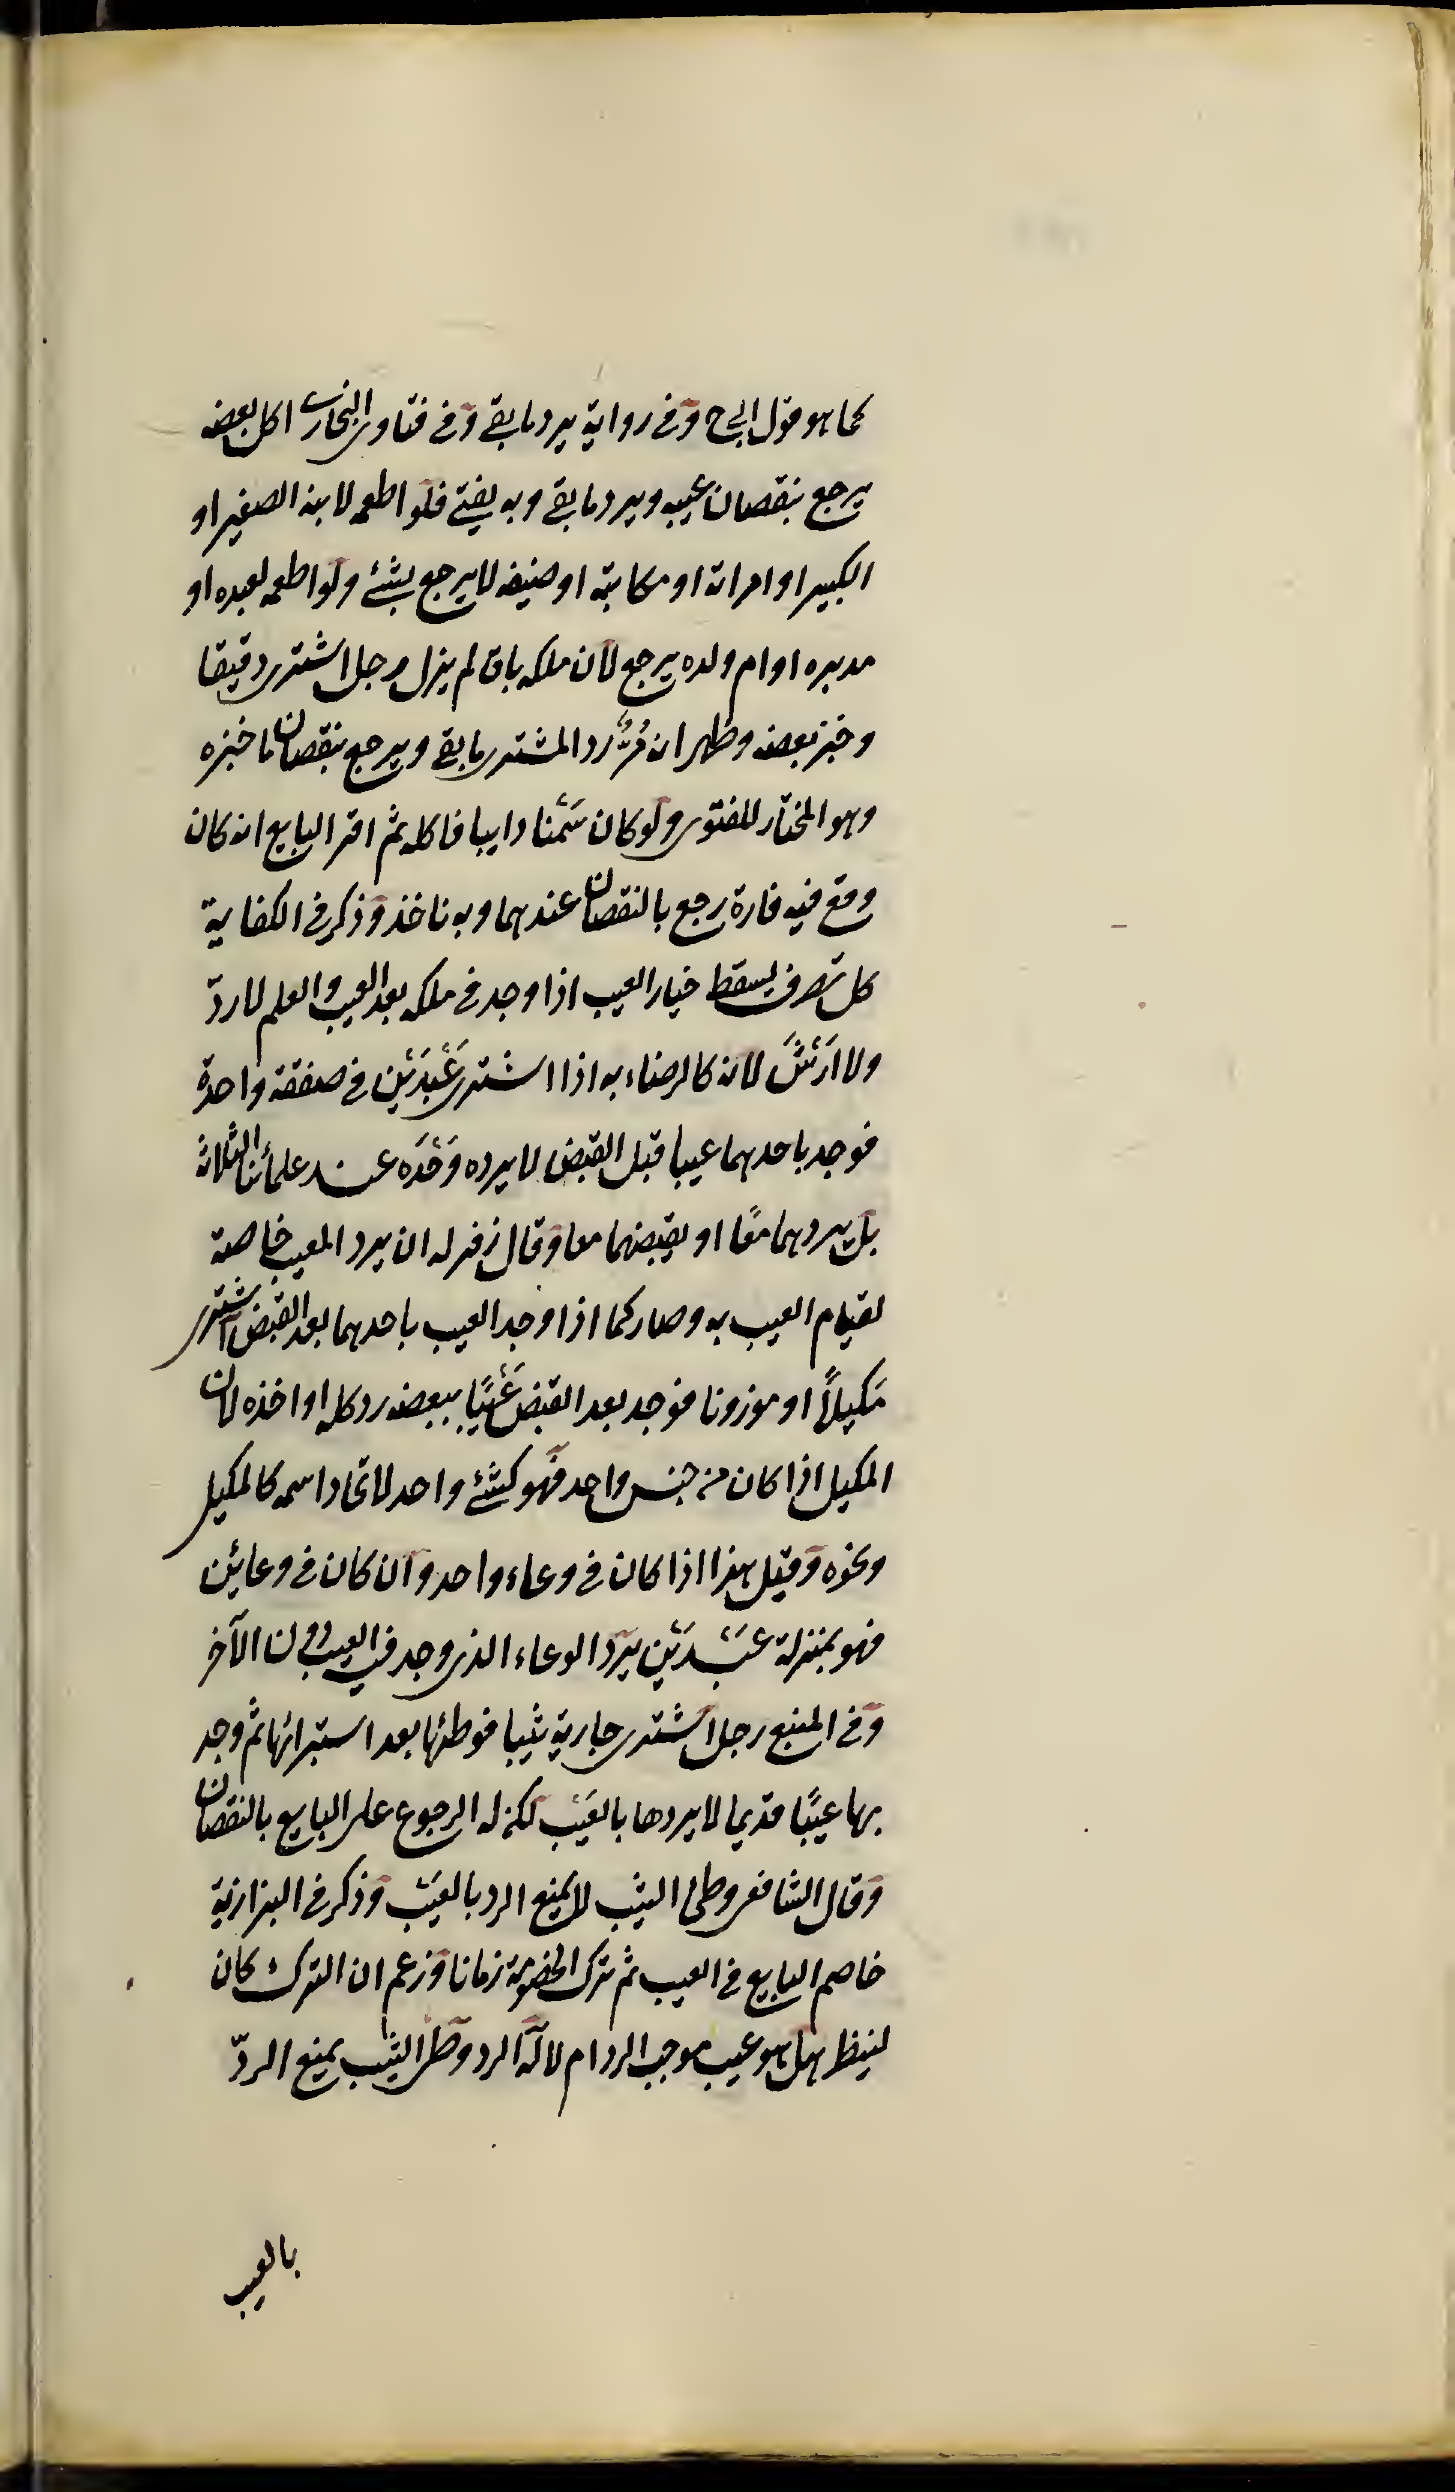 كما هو قول ابي ح وفى رواية يرد ما بقى وفى فتاوى البخارى اكل بعضه
يرجع بنقصان عيبه ويرد ما بقى وبه يفتى فلو اطعمه لابنه الصغير او
الكبير او امراته او مكاتبه او ضيفه لا يرجع بشئ ولو اطعمه لعبده او
مدبره او ام ولده يرجع لان ملكه باق لم يزل رجل اشترى دقيقا
وخبز بعضه وظهر انه مُرٌّ رد المشترى ما بقى ويرجع بنقصان ما خبزه
وهو المختار للفتوى ولو كان سَمْنا دايبا فاكله ثم اقر البايع انه كان
وقع فيه فارة رجع بالنقصان عندهما وبه ناخذ وذكر فى الكفاية
كل تصرف يسقط خيار العيب اذا وجد فى ملكه بعد العيب والعلم لا ردّ
ولا اَرْشَ لانه كالرضاء به اذا اشترى عَبْدَيْن فى صفقة واحدة
فوجد باحدهما عيبا قبل القبض لا يرده وَحْدَه عند علمائنا الثلاثة
بل يردهما معًا او يقبضهما معا وقال زفر له ان يرد المعيب خاصة
لقيام العيب به وصار كما اذا وجد العيب باحدهما بعد القبض اشترى
مَكيلاً او موزونا فوجد بعد القبض عَيْبًا ببعضه رد كله او اخذه لان
المكيل اذا كان من جنس واحد فهو كشئ واحد لاتحاد اسمه كالمكيل
ونحوه وقيل هذا اذا كان فى وعاء واحد وان كان فى وعائين
فهو بمنزلة عَبْدَيْن يرد الوعاء الذى وجد فيه العيب دون الآخر
وفى المنبع رجل اشترى جارية ثيبا فوطئها بعد استبرائها ثم وجد
بها عيبًا قديما لا يردها بالعَيْب لكن له الرجوع على البايع بالنقصان
وقال الشافعى وطئ الثيب لا يمنع الرد بالعَيْب وذكر فى البزازية
خاصم البايع فى العيب ثم ترك الخصومة زمانا وزعم ان الترك كان
لينظر هل هو عيب موجب الرد ام لا له الرد وطئ الثيب يمنع الردّ
بالعيب